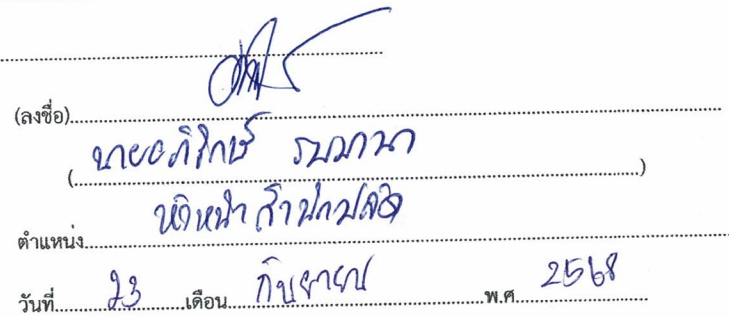 (ลงชื่อ)
(นายอภิรักษ์)
ตำแหน่ง หัวหน้าสำนักปลัด
วันที่ 23 เดือน กันยายน พ.ศ. 2568